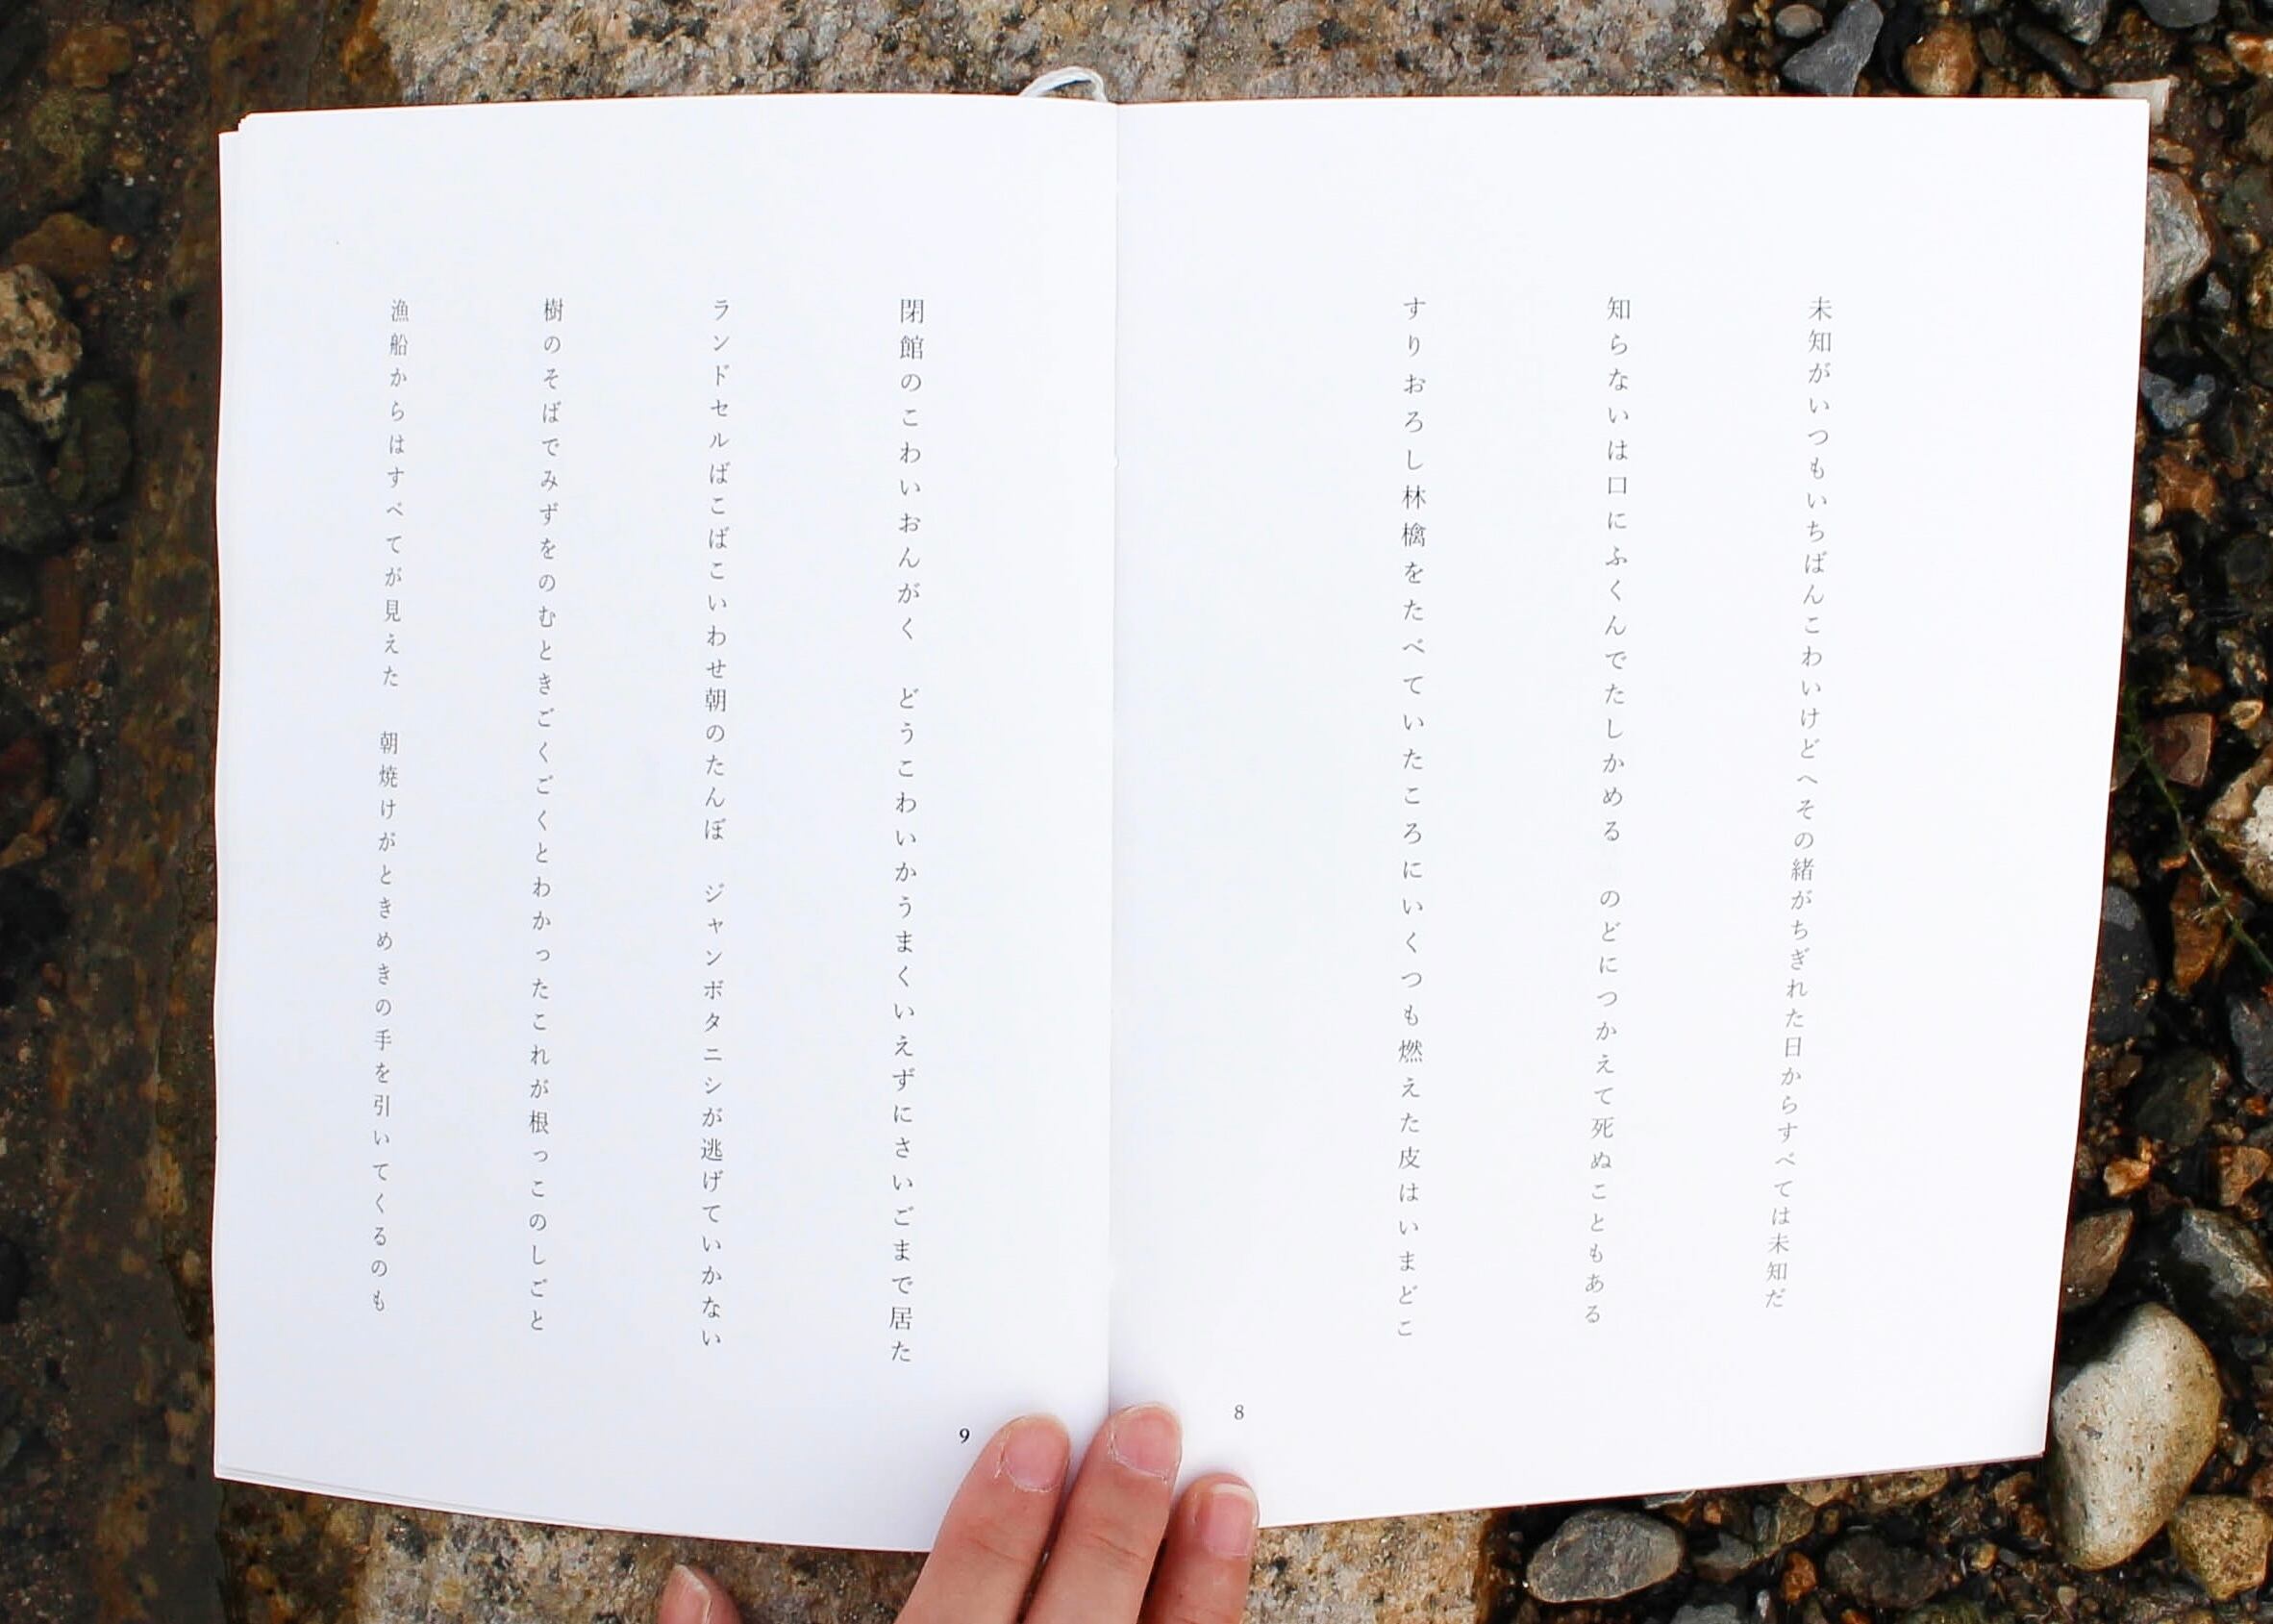 未知がいつもいちばんこわいけどへその緒がちぎれた日からすべては未知だ
知らないは口にふくんでたしかめる　のどにつかえて死ぬこともある
すりおろし林檎をたべていたころにいくつも燃えた皮はいまどこ
8
閉館のこわいおんがく　どうこわいかうまくいえずにさいごまで居た
ランドセルばこばこいわせ朝のたんぼ　ジャンボタニシが逃げていかない
樹のそばでみずをのむときごくごくとわかったこれが根っこのしごと
漁船からはすべてが見えた　朝焼けがときめきの手を引いてくるのも
9